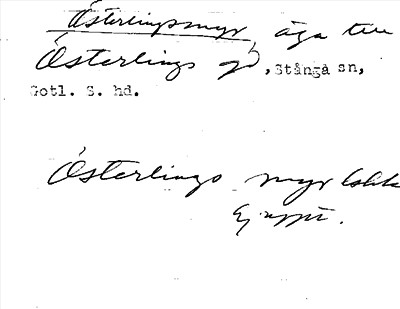 Österlingsmyr, äga till
Österlings gd, Stånga sn,
Gotl. S. hd.
Österlings myr
Ej uppt.